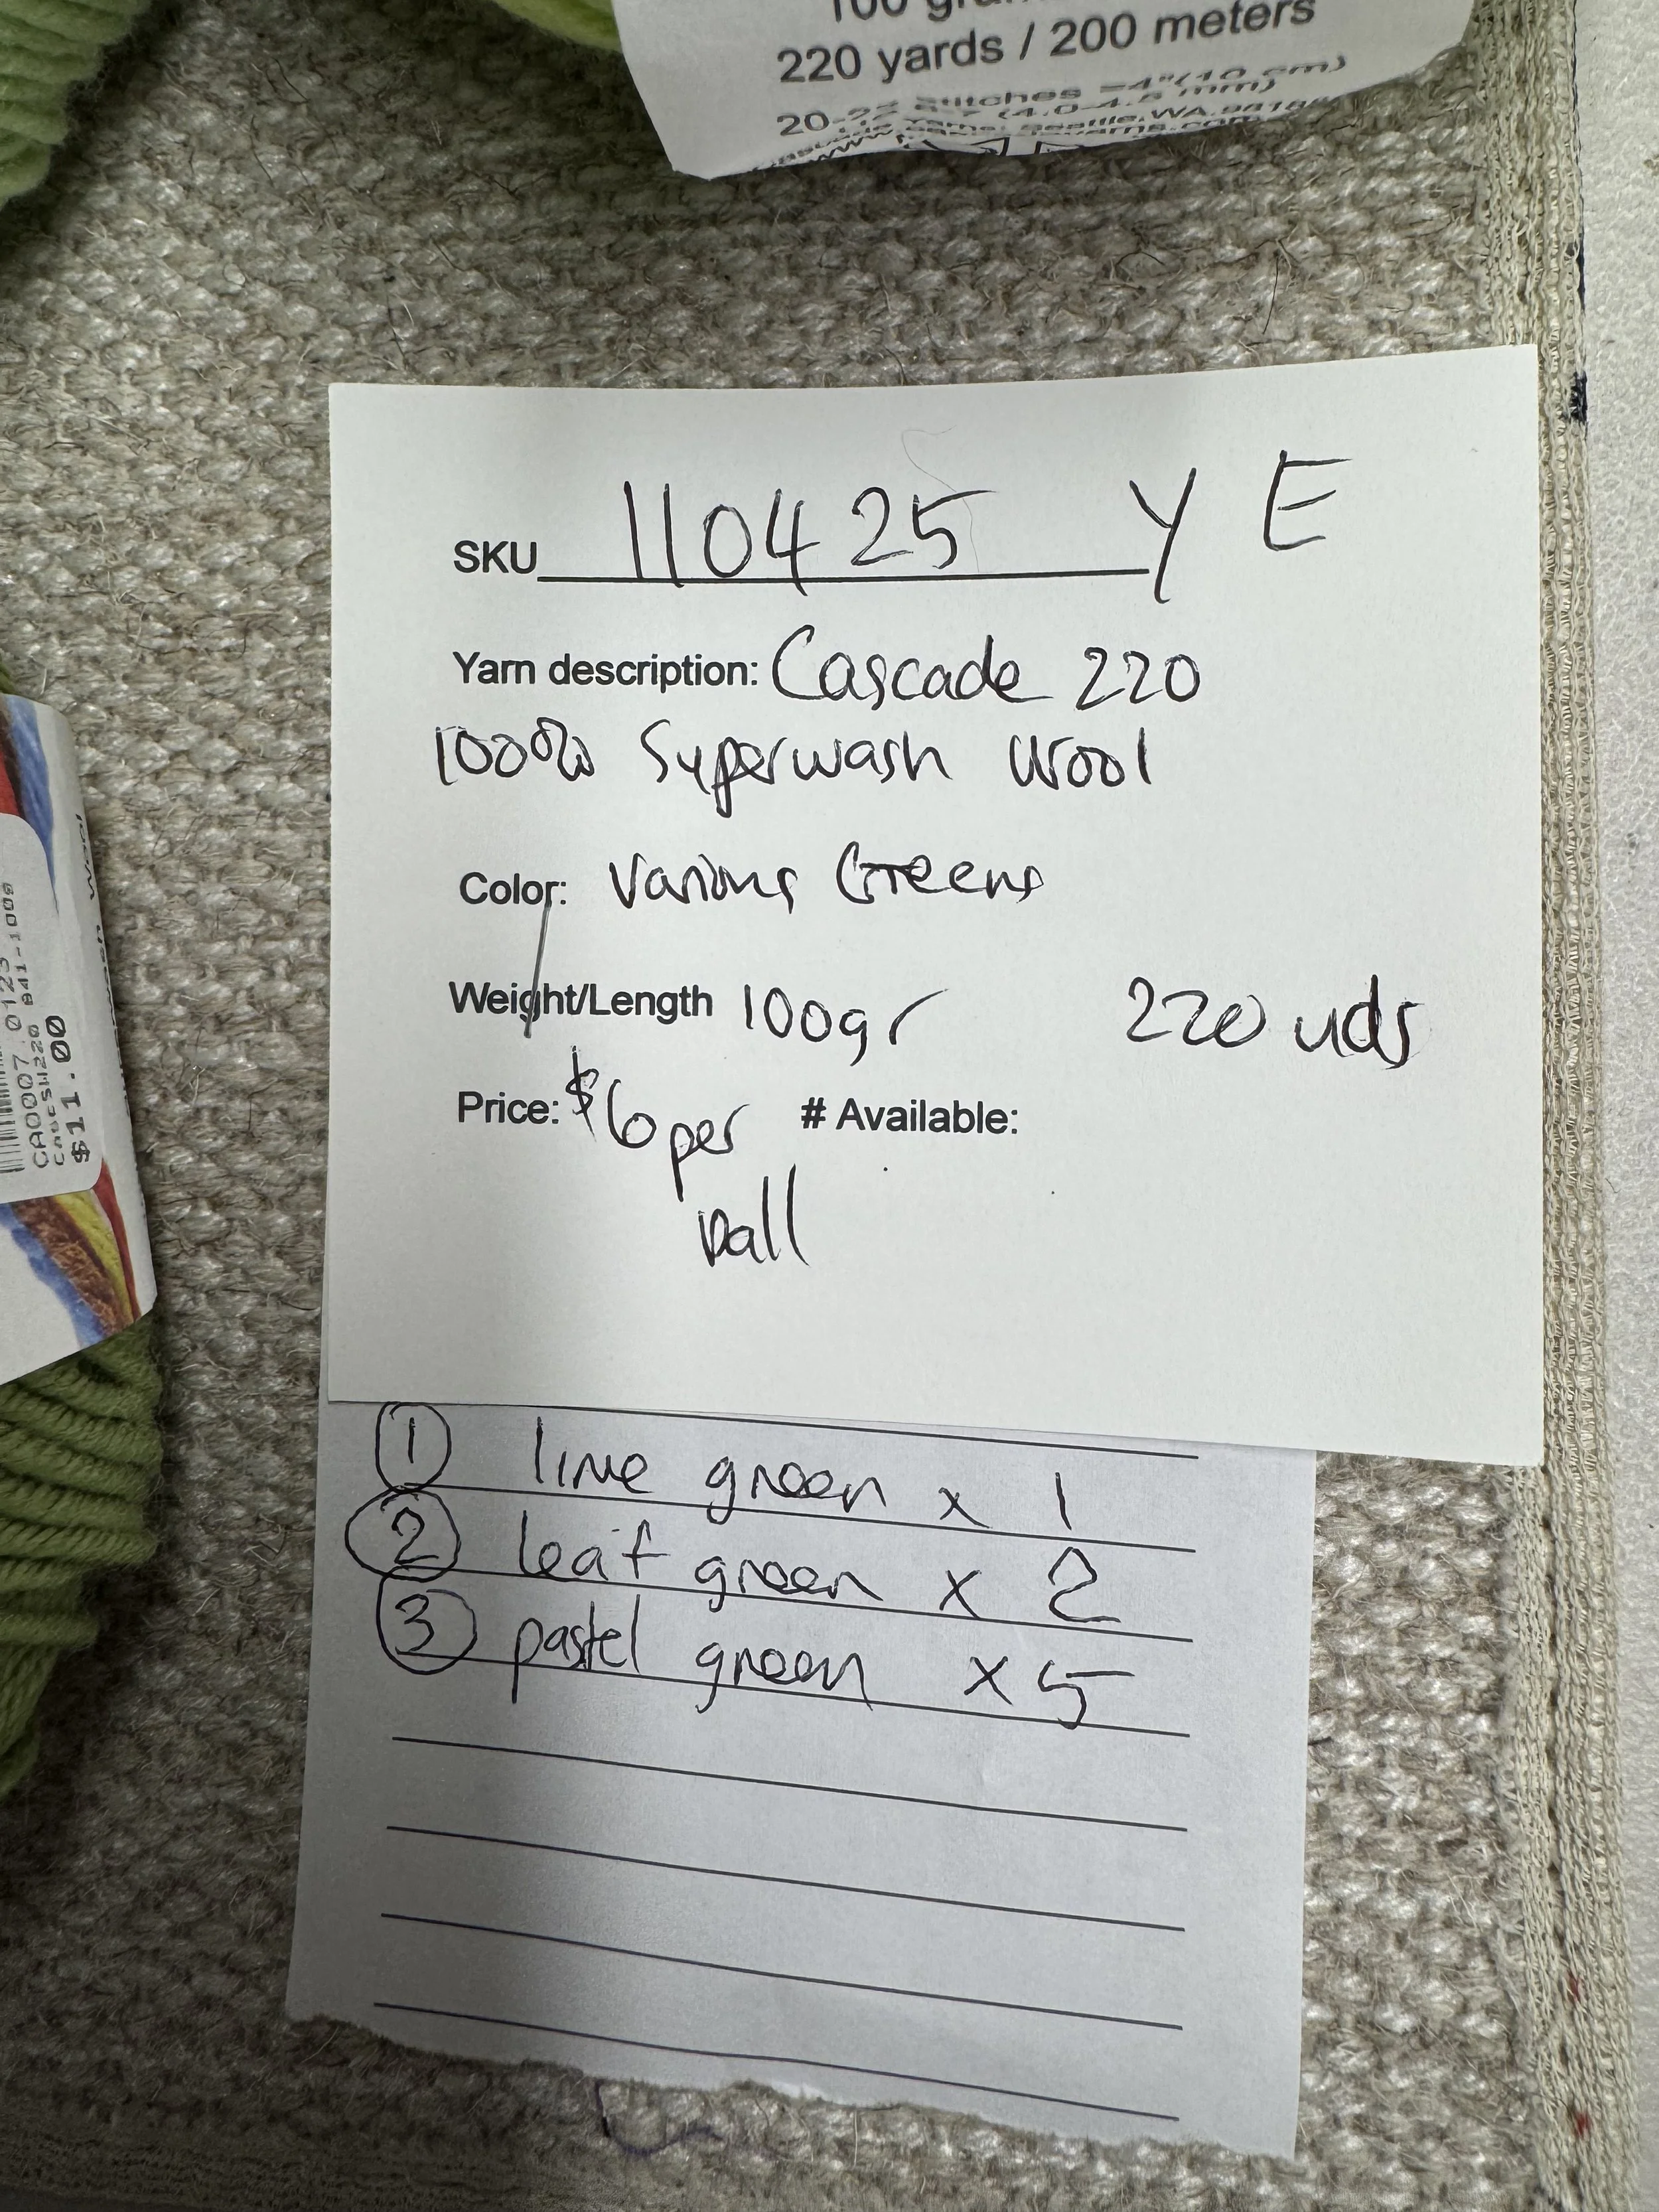 220 yards / 200 meters
SKU 110425 Y E
Yarn description: Cascade 220
100% Superwash Wool
Color: Various Greens
Weight/Length 100gr 220 yds
Price: $6 per # Available:
ball
1 lime green x 1
2 leaf green x 2
3 pastel green x 5
Wool
CA0007 0123
841-1009
$11.00